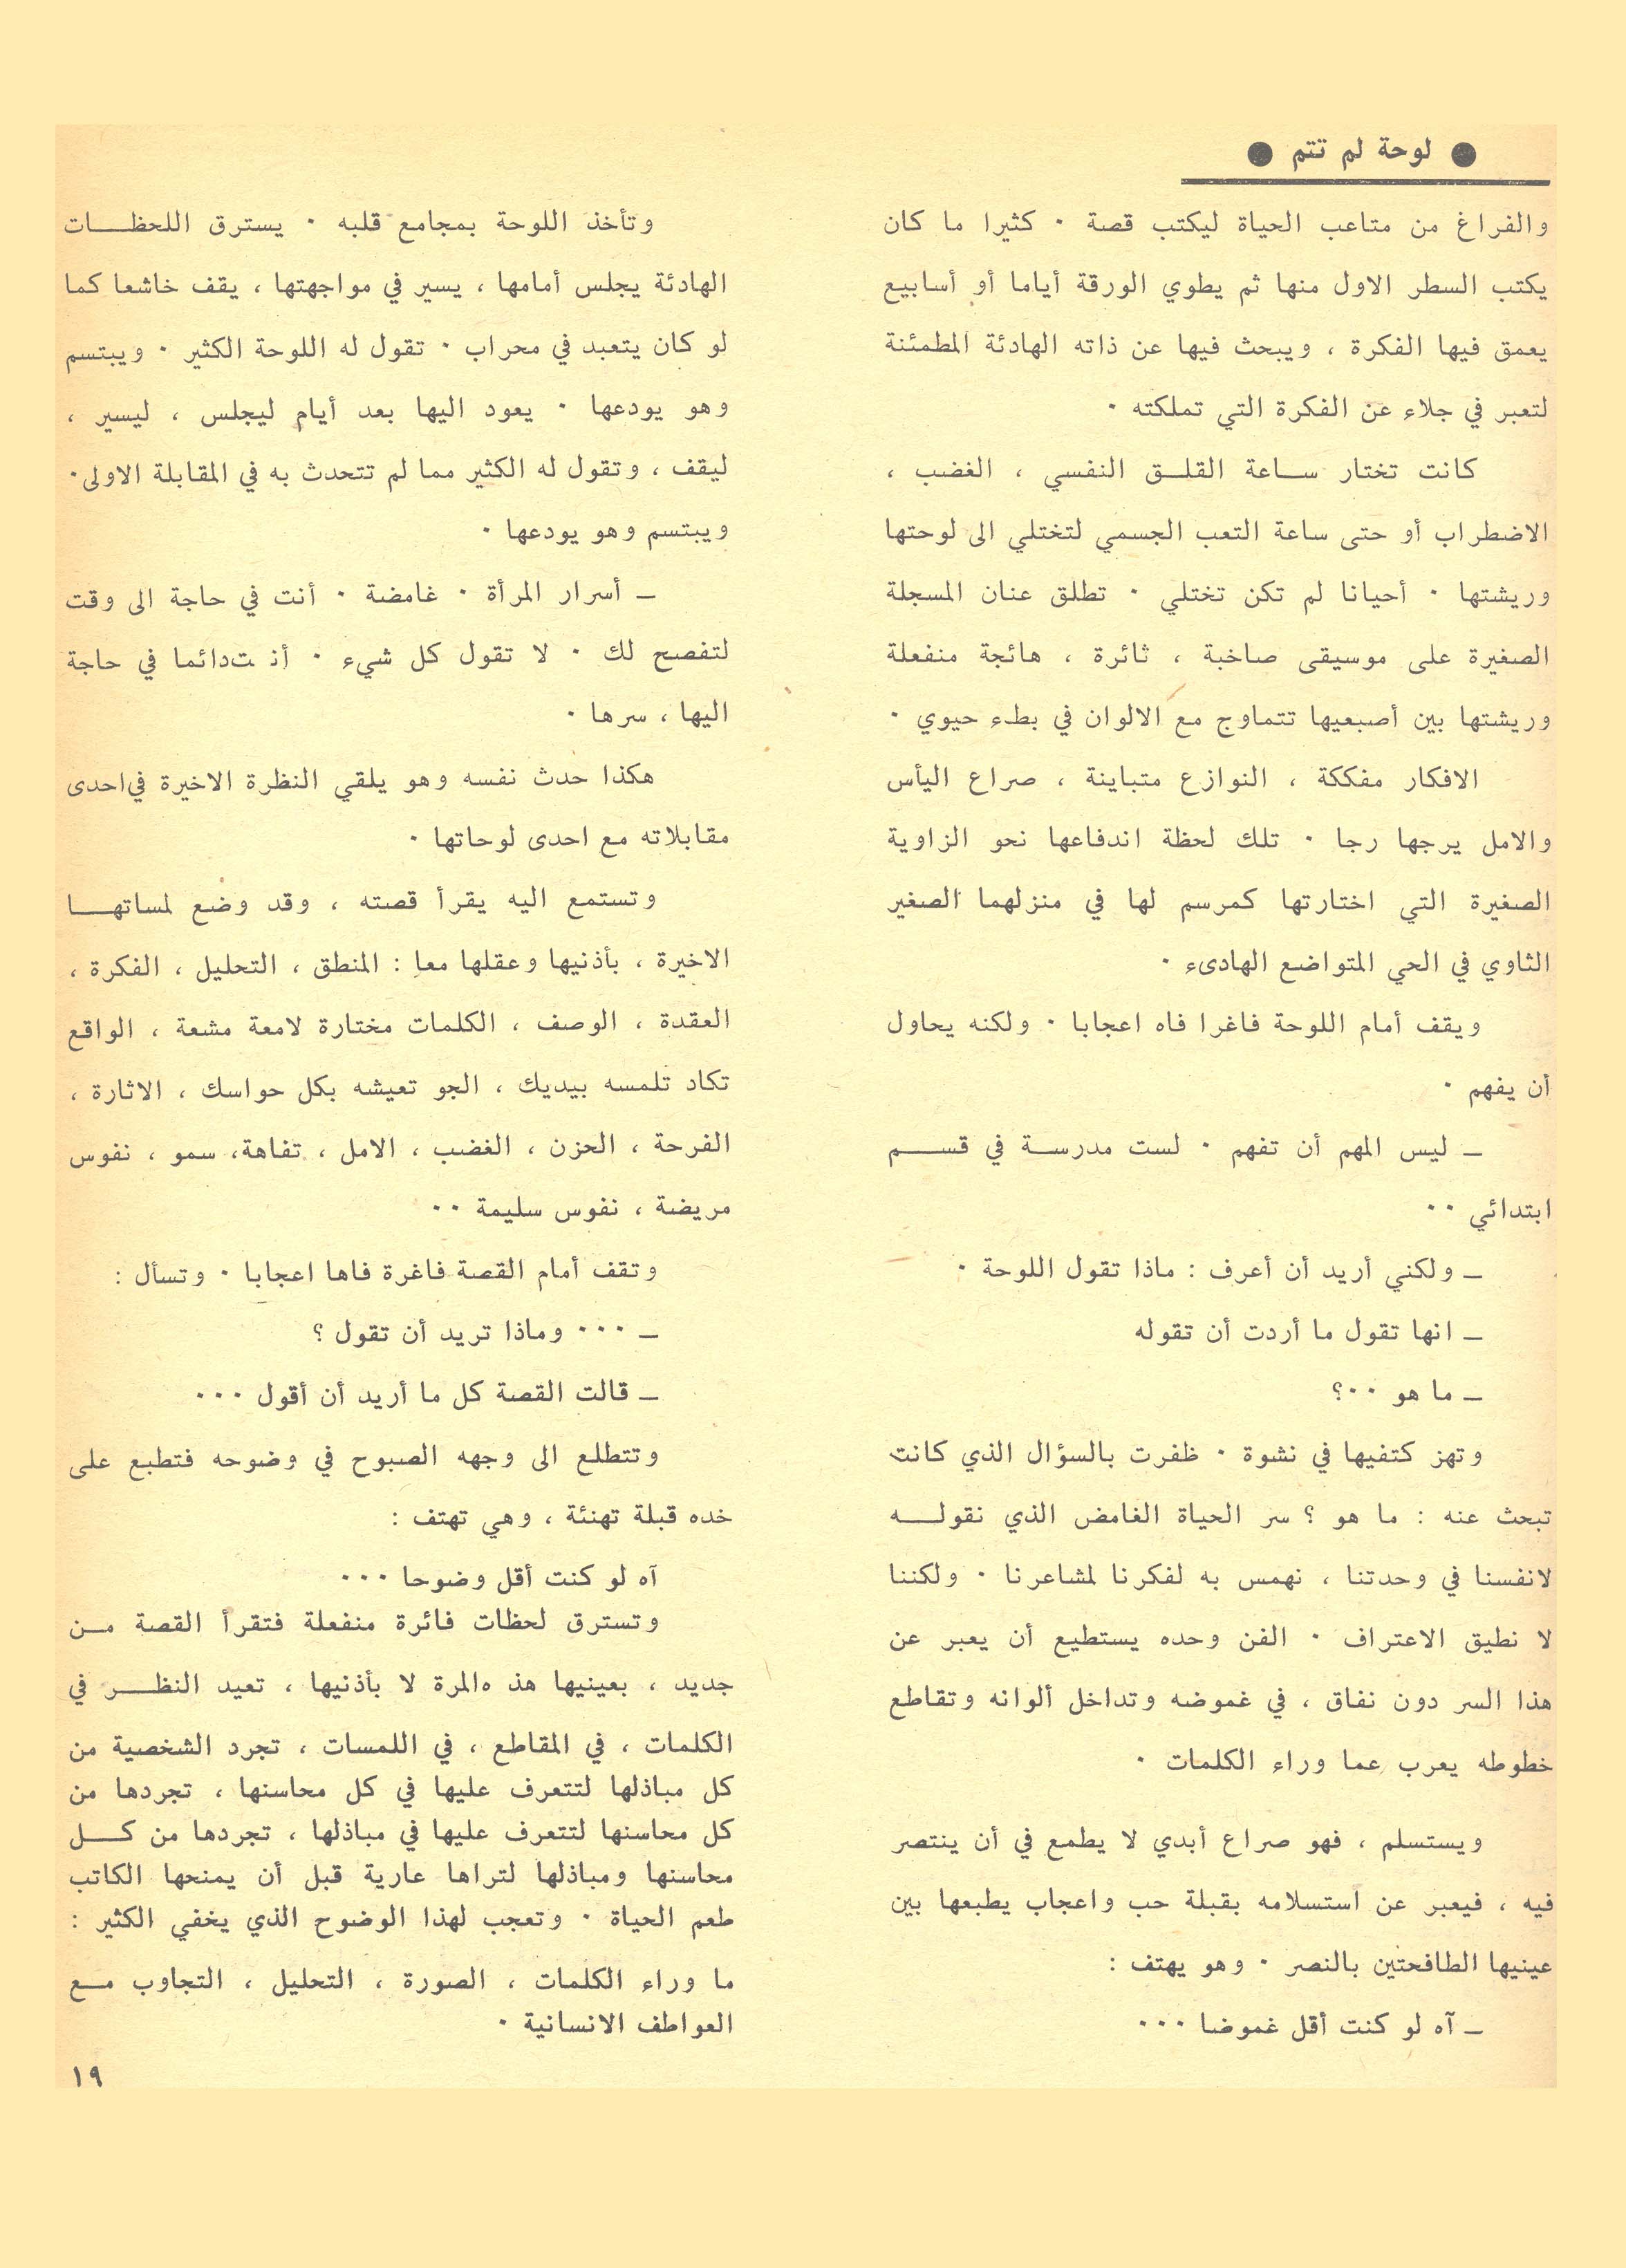 ● لوحة لم تتم ●
والفراغ من متاعب الحياة ليكتب قصة ٠ كثيرا ما كان
يكتب السطر الاول منها ثم يطوي الورقة أياما أو أسابيع
يعمق فيها الفكرة ، ويبحث فيها عن ذاته الهادئة المطمئنة
لتعبر في جلاء عن الفكرة التي تملكته ٠
كانت تختار ساعة القلق النفسي ، الغضب ،
الاضطراب أو حتى ساعة التعب الجسمي لتختلي الى لوحتها
وريشتها ٠ أحيانا لم تكن تختلي ٠ تطلق عنان المسجلة
الصغيرة على موسيقى صاخبة ، ثائرة ، هائجة منفعلة
وريشتها بين أصبعيها تتماوج مع الالوان في بطء حيوي ٠
الافكار مفككة ، النوازع متباينة ، صراع اليأس
والامل يرجها رجا ٠ تلك لحظة اندفاعها نحو الزاوية
الصغيرة التي اختارتها كمرسم لها في منزلهما الصغير
الثاوي في الحي المتواضع الهادىء ٠
ويقف أمام اللوحة فاغرا فاه اعجابا ٠ ولكنه يحاول
أن يفهم ٠
ـ ليس المهم أن تفهم ٠ لست مدرسة في قسم
ابتدائي ٠٠
ـ ولكني أريد أن أعرف : ماذا تقول اللوحة ٠
ـ انها تقول ما أردت أن تقوله
ـ ما هو ٠٠؟
وتهز كتفيها في نشوة ٠ ظفرت بالسؤال الذي كانت
تبحث عنه : ما هو ؟ سر الحياة الغامض الذي نقوله
لانفسنا في وحدتنا ، نهمس به لفكرنا لمشاعرنا ٠ ولكننا
لا نطيق الاعتراف ٠ الفن وحده يستطيع أن يعبر عن
هذا السر دون نفاق ، في غموضه وتداخل ألوانه وتقاطع
خطوطه يعرب عما وراء الكلمات ٠
ويستسلم ، فهو صراع أبدي لا يطمع في أن ينتصر
فيه ، فيعبر عن استسلامه بقبلة حب واعجاب يطبعها بين
عينيها الطافحتين بالنصر ٠ وهو يهتف :
ـ آه لو كنت أقل غموضا ٠٠٠
وتأخذ اللوحة بمجامع قلبه ٠ يسترق اللحظات
الهادئة يجلس أمامها ، يسير في مواجهتها ، يقف خاشعا كما
لو كان يتعبد في محراب ٠ تقول له اللوحة الكثير ٠ ويبتسم
وهو يودعها ٠ يعود اليها بعد أيام ليجلس ، ليسير ،
ليقف ، وتقول له الكثير مما لم تتحدث به في المقابلة الاولى٠
ويبتسم وهو يودعها ٠
ـ أسرار المرأة ٠ غامضة ٠ أنت في حاجة الى وقت
لتفصح لك ٠ لا تقول كل شيء ٠ أنت دائما في حاجة
اليها ، سرها ٠
هكذا حدث نفسه وهو يلقي النظرة الاخيرة في احدى
مقابلاته مع احدى لوحاتها ٠
وتستمع اليه يقرأ قصته ، وقد وضع لمساتها
الاخيرة ، بأذنيها وعقلها معا : المنطق ، التحليل ، الفكرة ،
العقدة ، الوصف ، الكلمات مختارة لامعة مشعة ، الواقع
تكاد تلمسه بيديك ، الجو تعيشه بكل حواسك ، الاثارة ،
الفرحة ، الحزن ، الغضب ، الامل ، تفاهة، سمو ، نفوس
مريضة ، نفوس سليمة ٠٠
وتقف أمام القصة فاغرة فاها اعجابا ٠ وتسأل :
ـ ٠٠٠ وماذا تريد أن تقول ؟
ـ قالت القصة كل ما أريد أن أقول ٠٠٠
وتتطلع الى وجهه الصبوح في وضوحه فتطبع على
خده قبلة تهنئة ، وهي تهتف :
آه لو كنت أقل وضوحا ٠٠٠
وتسترق لحظات فائرة منفعلة فتقرأ القصة من
جديد ، بعينيها هذ هالمرة لا بأذنيها ، تعيد النظر في
الكلمات ، في المقاطع ، في اللمسات ، تجرد الشخصية من
كل مباذلها لتتعرف عليها في كل محاسنها ، تجردها من
كل محاسنها لتتعرف عليها في مباذلها ، تجردها من كل
محاسنها ومباذلها لتراها عارية قبل أن يمنحها الكاتب
طعم الحياة ٠ وتعجب لهذا الوضوح الذي يخفي الكثير :
ما وراء الكلمات ، الصورة ، التحليل ، التجاوب مع
العواطف الانسانية ٠
١٩